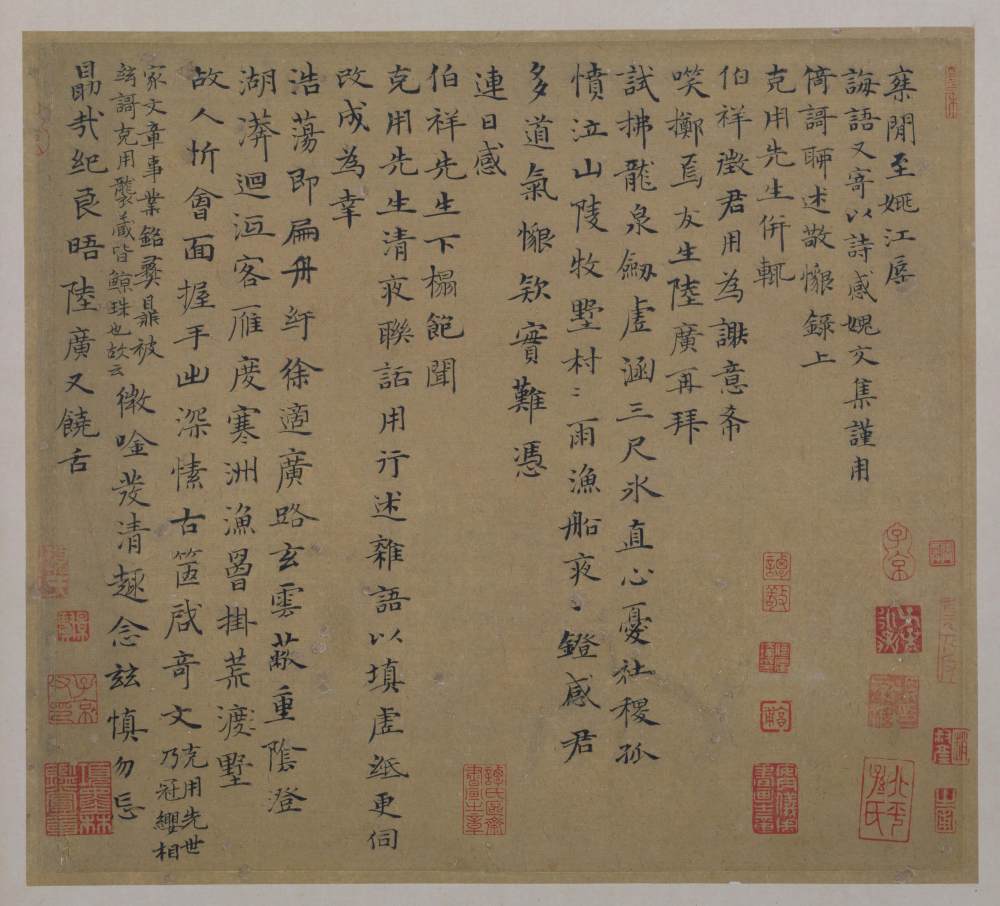 閒至姚江辱
誨語又寄以詩感媿交集謹用
倚謌聊述敬懷錄上
克用先生併輒
伯祥徵君用為謝意希
唉擲焉友生陸廣再拜
試拂龍泉劒虛涵三尺水直心憂社稷孤
憤泣山陵牧墅村〻雨漁船夜〻鐙感君
多道氣懷欵實難憑
連日感
伯祥先生下榻飽聞
克用先生清夜聯話用行述雜語以填虛紙更伺
改成為幸
浩蕩即扁舟紆徐適廣路玄雲蔽重陰澄
湖漭迴沍客雁度寒洲漁罾掛荒渡墅
故人忻會面握手出深愫古篋啟奇文
克用先世
乃冠纓相
家文章事業銘彝鼎被
謌克用襲藏皆鯨珠也故云
微唫發清趣念茲慎勿忘
勗哉紀良晤陸廣又饒舌
子京
北平孫氏
譚氏區齋書畫之章